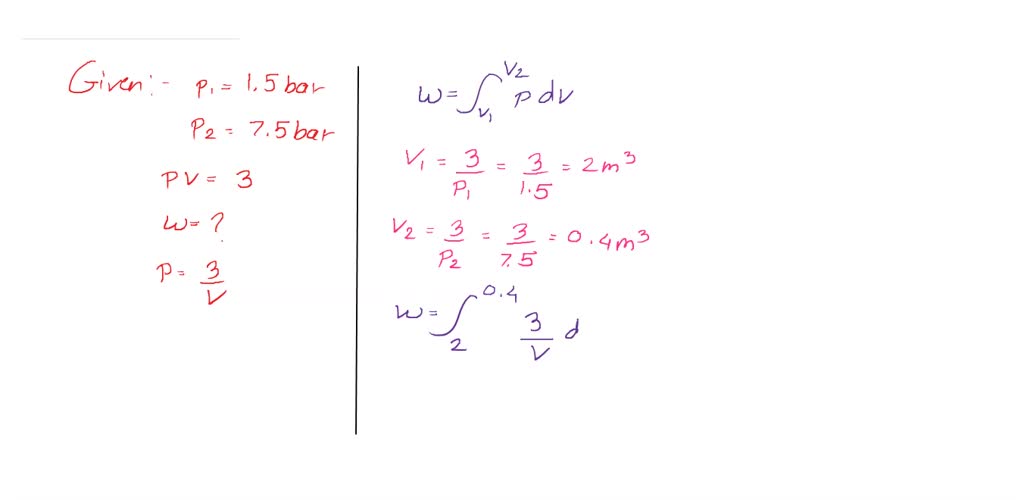 Given:- P₁ = 1.5 bar
P₂ = 7.5 bar
PV = 3
W = ?
P = 3/V
W = ∫_{V₁}^{V₂} P dV
V₁ = 3/P₁ = 3/1.5 = 2m³
V₂ = 3/P₂ = 3/7.5 = 0.4m³
W = ∫_{2}^{0.4} 3/V d